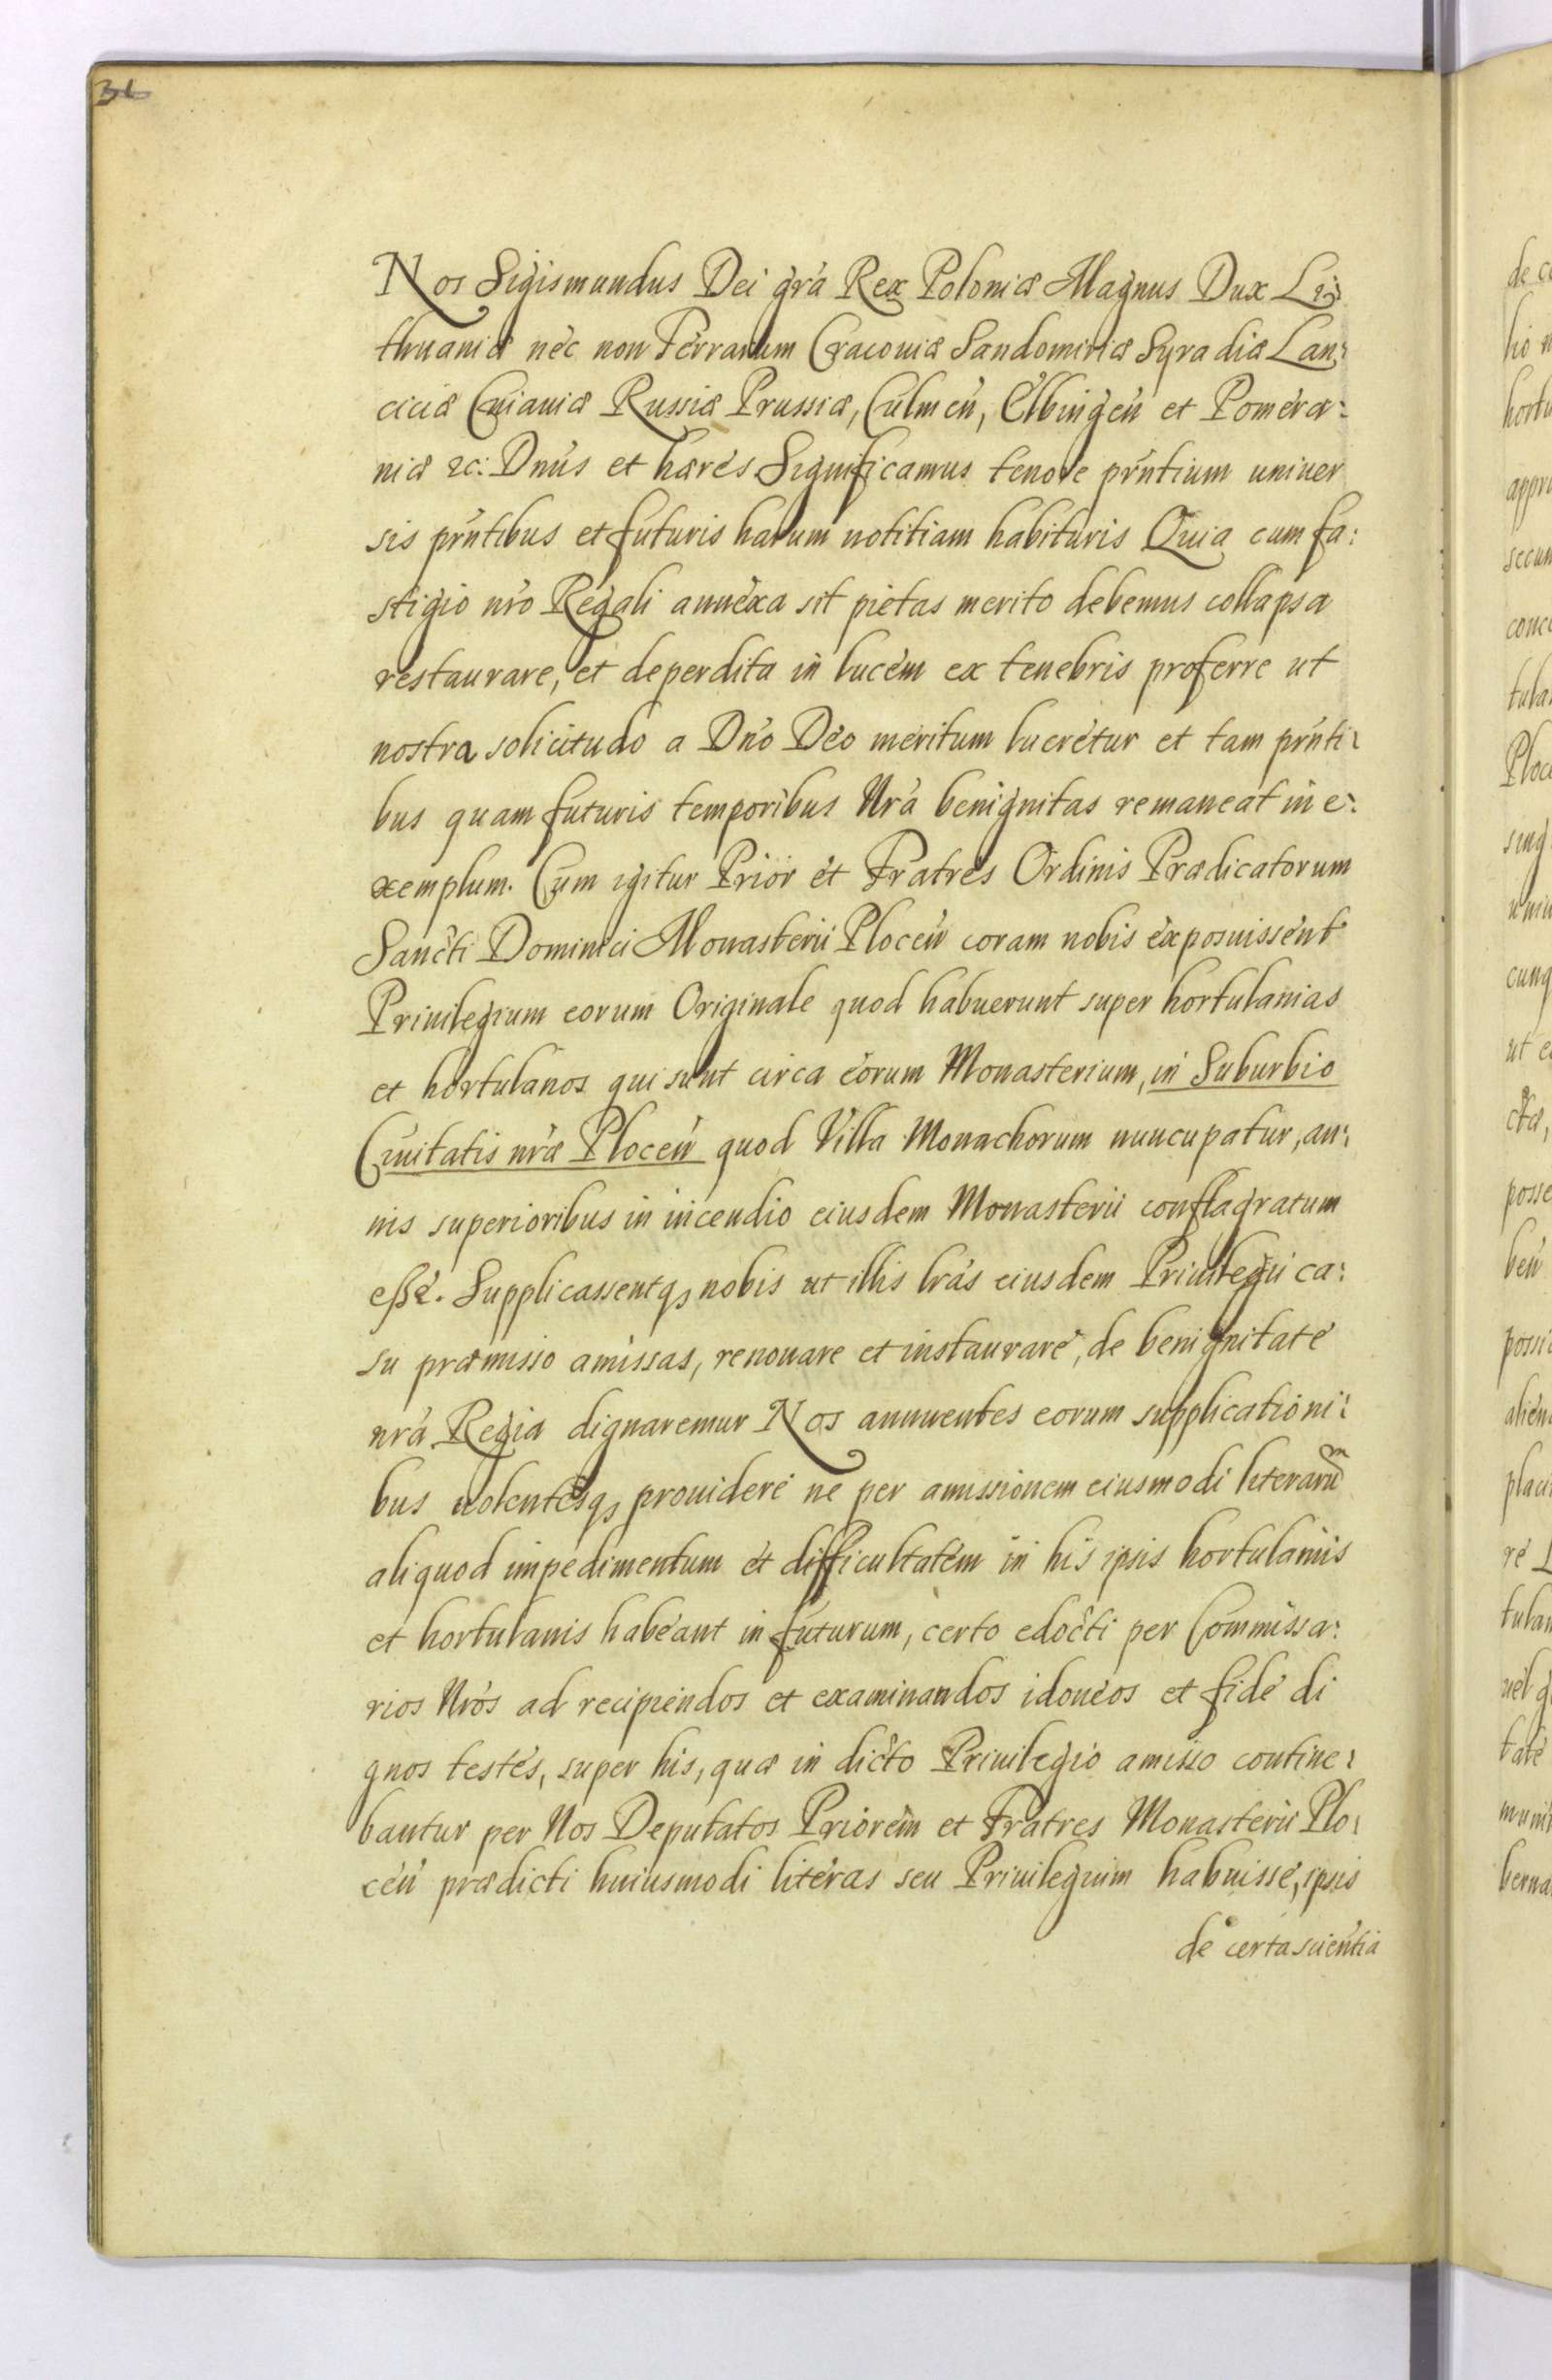 Nos Sigismundus Dei grã Rex Poloniæ Magnus Dux Li:
thuaniæ nec non Terrarum Cracouiæ Sandomiriæ Syradiæ Lan:
ciciæ Cuiauiæ Russiæ Prussiæ, Culmeñ, Elbingeñ et Pomera:
niæ &c: Dnus et hæres Significamus tenore prntium uniuer
sis prntibus et futuris harum notitiam habituris Quia cum fa:
stigio nro Regali annexa sit pietas merito debemus collapsa
restaurare, et deperdita in lucem ex tenebris proferre ut
nostra solicitudo a Dno Deo meritum lucretur et tam prnti:
bus quam futuris temporibus Nra benignitas remaneat in e:
xemplum. Cum igitur Prior et Fratres Ordinis Prædicatorum
Sancti Dominici Monasterii Ploceñ coram nobis exposuissent
Priuilegium eorum Originale quod habuerunt super hortulanias
et hortulanos qui sunt circa eorum Monasterium, in Suburbio
Ciuitatis nræ Ploceñ quod Villa Monachorum nuncupatur, an:
nis superioribus in incendio eiusdem Monasterii conflagratum
eße. Supplicassentq3 nobis ut illis lras eiusdem Priuilegii ca:
su præmisso amissas, renouare et instaurare, de benignitate
nra Regia dignaremur Nos annuentes eorum supplicationi:
bus uolentesq3 prouidere ne per amissionem eiusmodi literarũ
aliquod impedimentum et difficultatem in his ipsis hortulaniis
et hortulanis habeant in futurum, certo edocti per Commissa:
rios Nros ad recipiendos et examinandos idoneos et fide di
gnos testes, super his, quæ in dicto Priuilegio amisso contine:
bantur per Nos Deputatos Priorem et Fratres Monasterii Plo:
ceñ prædicti huiusmodi literas seu Priuilegium habuisse, ipsis
de certa scientia